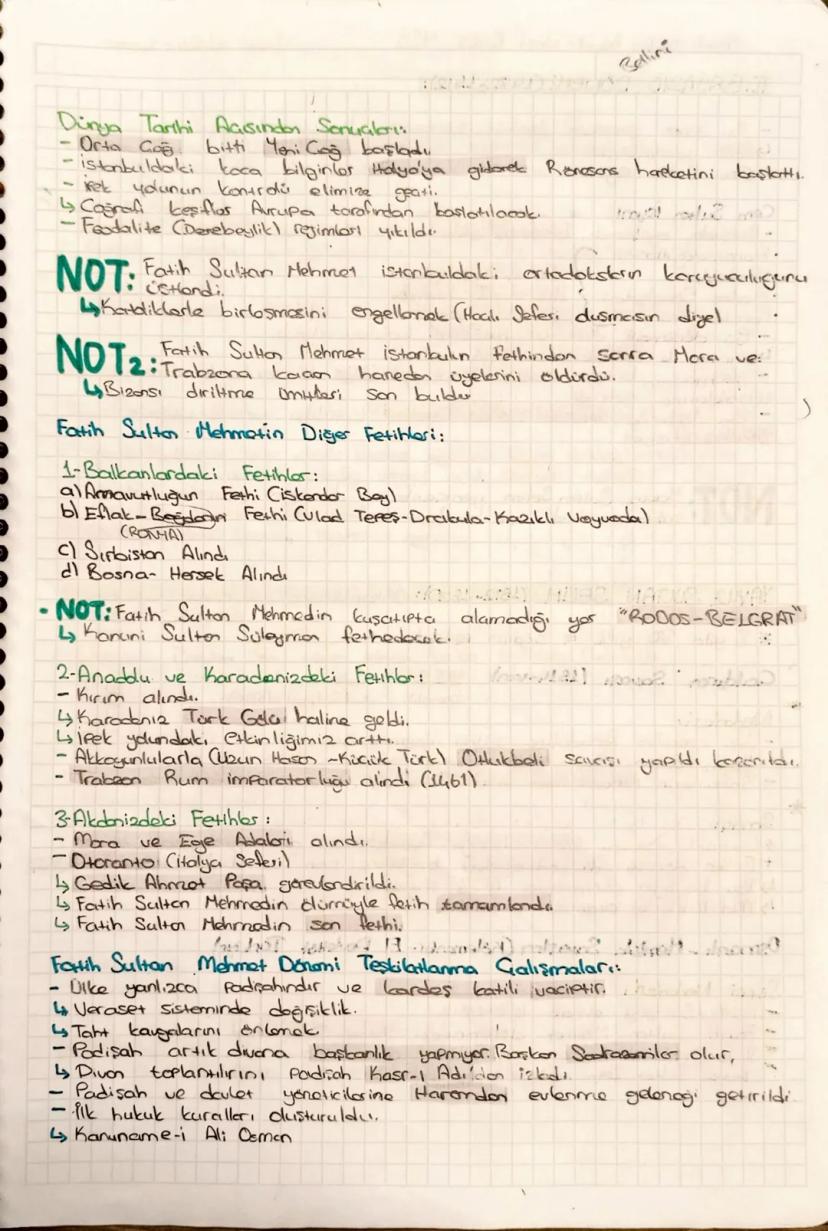 Bellini
Dünya Tarihi Açısından Sonuçları:
- Orta Çağ bitti Yeni Çağ başladı
- İstanbuldaki koca bilginler İtalya'ya giderek Rönesans hareketini başlattı.
- İpek yolunun kontrolü elimize geçti.
↳ Coğrafi keşifler Avrupa tarafından başlatılacak.
- Feodalite (Derebeylik) rejimleri yıkıldı.
NOT: Fatih Sultan Mehmet istanbuldaki ortadoksların koruyuculuğunu
üstlendi.
↳ Katoliklerle birleşmesini engellemek (Haçlı Seferi düşmesin diye)
NOT2: Fatih Sultan Mehmet istanbulun fethinden sonra Mora ve
Trabzona kaçan hanedan üyelerini öldürdü.
↳ Bizansı diriltme ümitleri son buldu
Fatih Sultan Mehmetin Diğer Fetihleri:
1-Balkanlardaki Fetihler:
a) Arnavutluğun Fethi (İskender Bey)
b) Eflak-Boğdanın Fethi (Vlad Tepeş-Drakula-Kazıklı Voyvoda)
(ROMYA)
c) Sırbistan Alındı
d) Bosna- Hersek Alındı
- NOT: Fatih Sultan Mehmedin kuşatıpta alamadığı yer "RODOS-BELGRAT"
↳ Kanuni Sultan Süleyman fethedecek.
2-Anadolu ve Karadenizdeki Fetihler:
- Kırım alındı.
↳ Karadeniz Türk Gölü haline geldi.
↳ İpek yolundaki etkinliğimiz arttı.
- Akkoyunlularla (Uzun Hasan -Küçük Türk) Otlukbeli savaşı yapıldı kazanıldı.
- Trabzon Rum imparatorluğu alındı (1461)
3-Akdenizdeki Fetihler:
- Mora ve Ege Adaları alındı.
- Otoranto (İtalya Seferi)
↳ Gedik Ahmet Paşa görevlendirildi.
↳ Fatih Sultan Mehmedin ölümüyle fetih tamamlandı.
↳ Fatih Sultan Mehmedin son fethi.
Fatih Sultan Mehmet Dönemi Teşkilatlanma Çalışmaları:
- Ülke yanlızca padişahındır ve kardeş katili vaciptir.
↳ Veraset sisteminde değişiklik.
↳ Taht kavgalarını önlemek
- Padişah artık divana başkanlık yapmıyor. Başkan Sadrazamlar olur,
↳ Divan toplantılırını padişah Kasr-ı Adil'den izledi.
- Padişah ve devlet yöneticilerine Haremden evlenme geleneği getirildi.
- İlk hukuk kuralları oluşturuldu.
↳ Kanuname-i Ali Osman